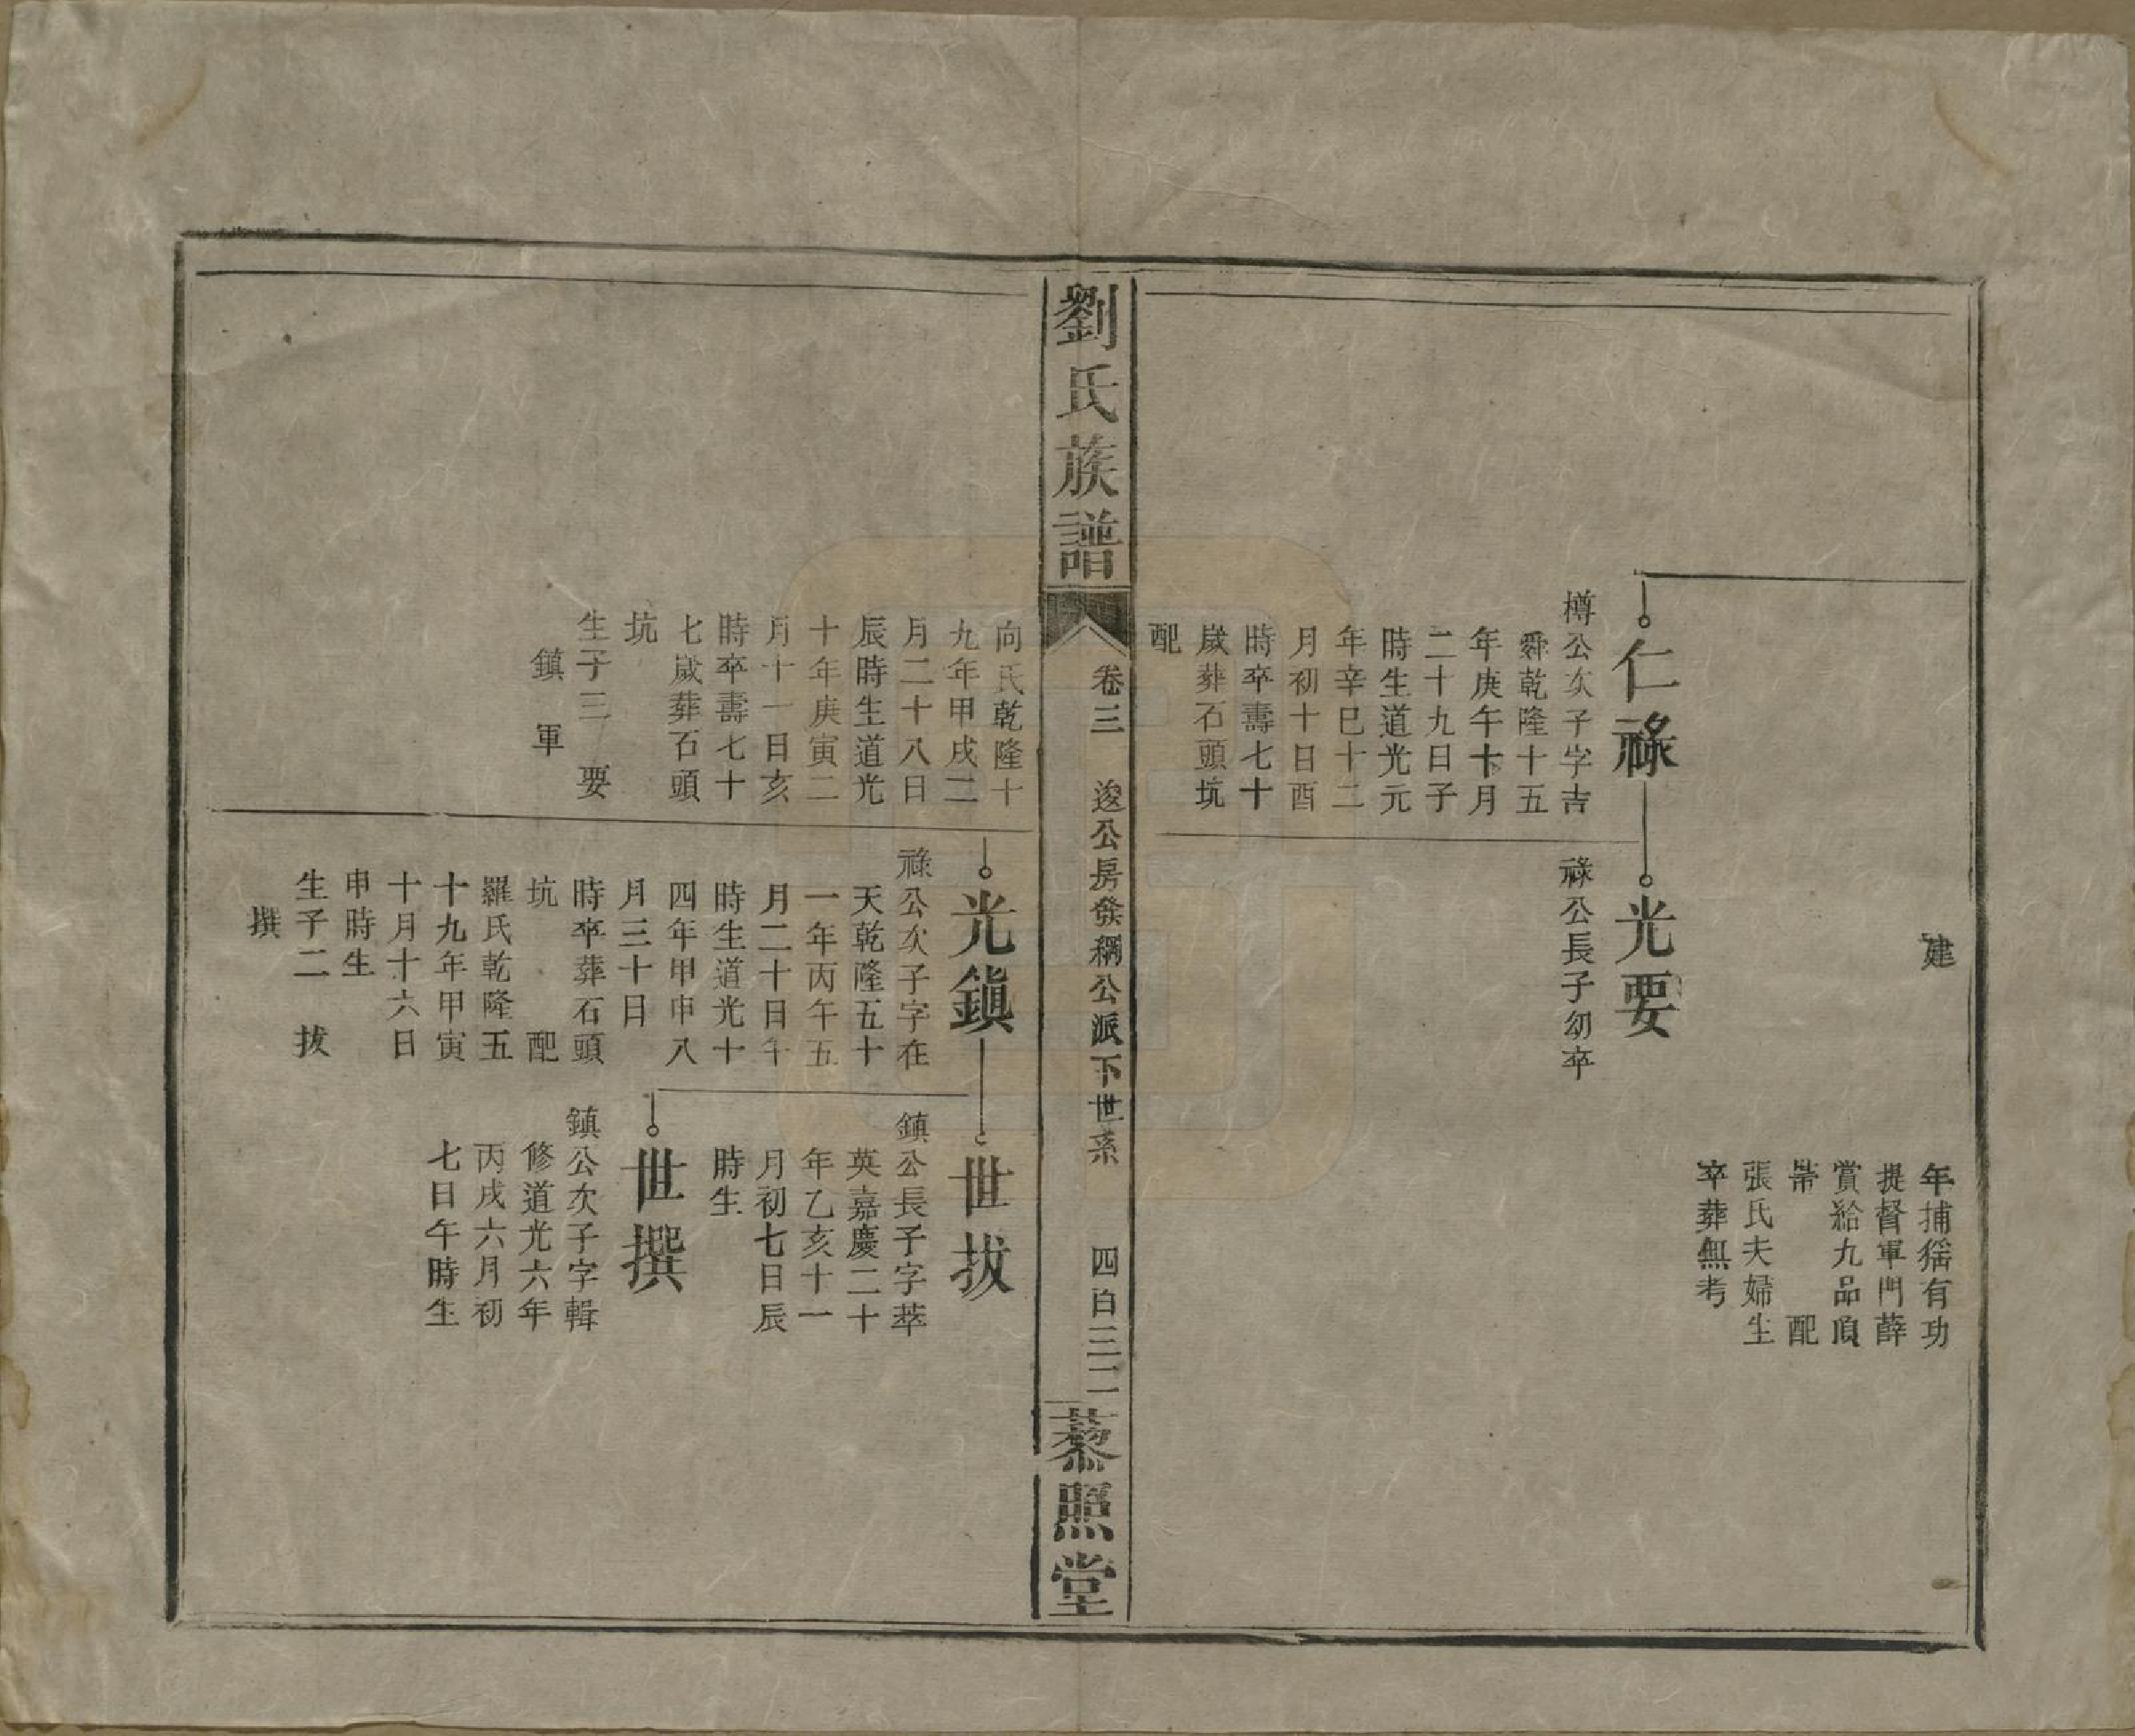 建
年捕猺有功
提督軍門薛
賞給九品頂
帶　配
張氏夫婦生
卒葬無考
仁祿
樽公次子字吉
舜乾隆十五
年庚午十月
二十九日子
時生道光元
年辛巳十二
月初十日酉
時卒壽七十
歲葬石頭坑
配
光要
祿公長子幼卒
劉氏族譜
卷三　逡公房發稠公派下世系　四百三二
藜照堂
向氏乾隆十
九年甲戌二
月二十八日
辰時生道光
十年庚寅二
月十一日亥
時卒壽七十
七歲葬石頭
坑
生子三　要
鎮　軍
光鎮
祿公次子字在
天乾隆五十
一年丙午五
月二十日午
時生道光十
四年甲申八
月三十日
時卒葬石頭
坑　配
羅氏乾隆五
十九年甲寅
十月十六日
申時生
生子二　拔
撰
世拔
鎮公長子字萃
英嘉慶二十
年乙亥十一
月初七日辰
時生
世撰
鎮公次子字輯
修道光六年
丙戌六月初
七日午時生